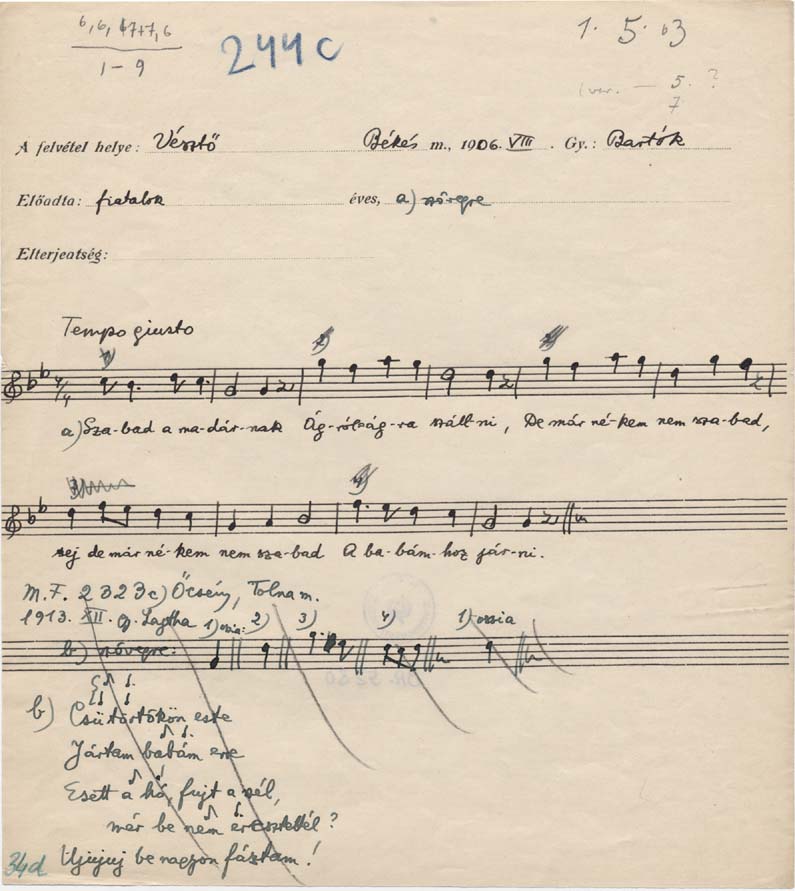 6, 6, 7+7, 6
1-9
244c
1. 5. b3
(var. — 5. ?
7
A felvétel helye: Vésztő Békés m., 1906. VIII. Gy.: Bartók
Előadta: fiatalok éves, a) szövegre
Elterjedtség:
Tempo giusto
a) Sza-bad a ma-dár-nak Ág-ról-ág-ra száll-ni, De már né-kem nem sza-bad,
sej de már né-kem nem sza-bad A ba-bám-hoz jár-ni.
M.F. 2323c) Őcsény, Tolna m.
1913. XII. Gy. Lajtha 1) ossia: 2) 3) 4) 1) ossia
b) szövegre:
b) Csütörtökön este
Jártam babám erre
Esett a hó, fujt a szél,
már be nem eresztettél?
Ujujuj be nagyon fáztam!
34d